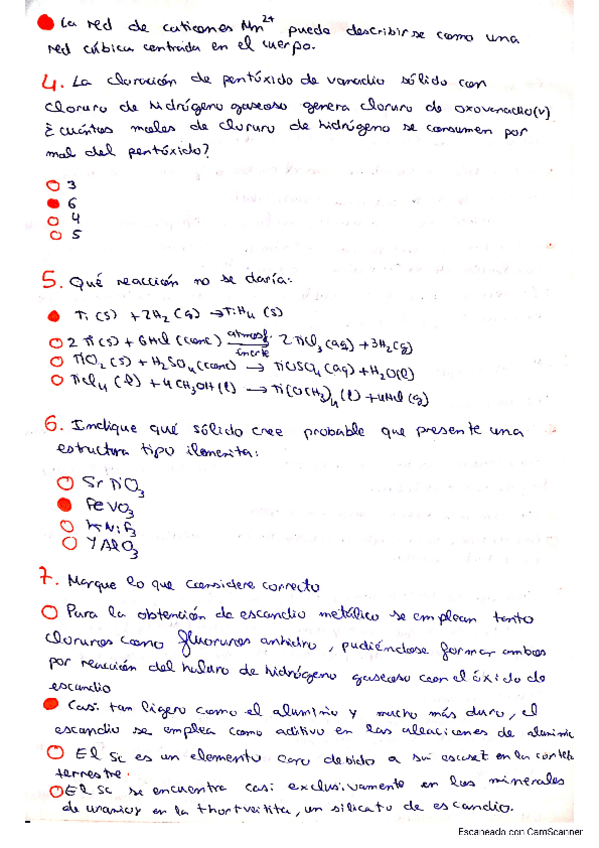 La red de cationes Mn²⁺ puede describirse como una
red cúbica centrada en el cuerpo.
4. La cloración de pentóxido de vanadio sólido con
cloruro de hidrógeno gaseoso genera cloruro de oxovanadio(V)
¿cuántos moles de cloruro de hidrógeno se consumen por
mol del pentóxido?
3
6
4
5
5. Qué reacción no se daría:
Ti (s) + 2H₂ (g) → TiH₄ (s)
2 Ti(s) + 6HCl (conc) atmosf. inerte → 2 TiCl₃(aq) + 3H₂(g)
TiO₂ (s) + H₂SO₄(conc) → TiOSO₄(aq) + H₂O(l)
TiCl₄ (l) + 4CH₃OH(l) → Ti(OCH₃)₄(l) + 4HCl(g)
6. Indique qué sólido cree probable que presente una
estructura tipo ilmenita:
SrTiO₃
FeVO₃
KNiF₃
YAlO₃
7. Marque lo que considere correcto
Para la obtención de escandio metálico se emplean tanto
cloruros como fluoruros anhidro, pudiéndose formar ambos
por reacción del haluro de hidrógeno gaseoso con el óxido de
escandio
Casi tan ligero como el aluminio y mucho más duro, el
escandio se emplea como aditivo en las aleaciones de aluminio
El Sc es un elemento caro debido a su escasez en la corteza
terrestre.
El Sc se encuentra casi exclusivamente en los minerales
de uranio y en la thortveitita, un silicato de escandio.
Escaneado con CamScanner